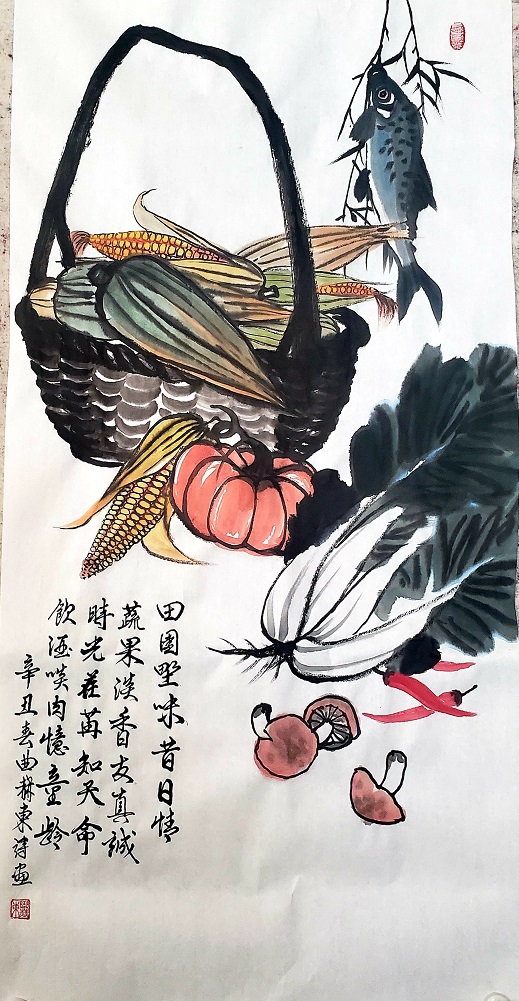 田園野味昔日情
蔬果淡香友真誠
時光荏苒知天命
飲酒啖肉憶童齡
辛丑春曲赫東詩畫